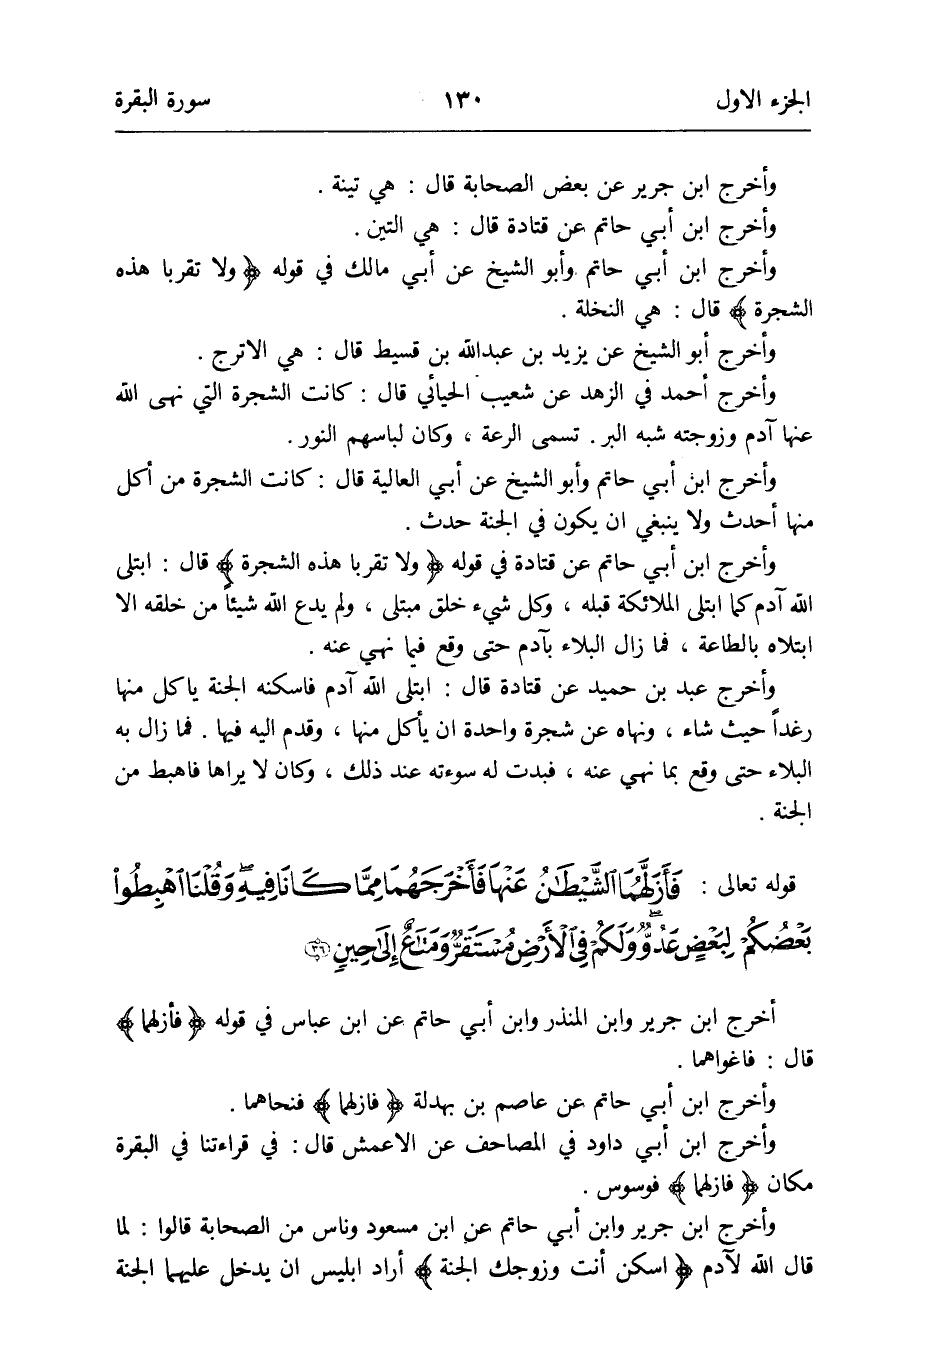 الجزء الاول ١٣٠ سورة البقرة
وأخرج ابن جرير عن بعض الصحابة قال : هي تينة .
وأخرج ابن أبي حاتم عن قتادة قال : هي التين .
وأخرج ابن أبي حاتم وأبو الشيخ عن أبي مالك في قوله ﴿ ولا تقربا هذه
الشجرة ﴾ قال : هي النخلة .
وأخرج أبو الشيخ عن يزيد بن عبدالله بن قسيط قال : هي الاترج .
وأخرج أحمد في الزهد عن شعيب الحيائي قال : كانت الشجرة التي نهى الله
عنها آدم وزوجته شبه البر . تسمى الرعة ، وكان لباسهم النور .
وأخرج ابن أبي حاتم وأبو الشيخ عن أبي العالية قال : كانت الشجرة من أكل
منها أحدث ولا ينبغي ان يكون في الجنة حدث .
وأخرج ابن أبي حاتم عن قتادة في قوله ﴿ ولا تقربا هذه الشجرة ﴾ قال : ابتلى
الله آدم كما ابتلى الملائكة قبله ، وكل شيء خلق مبتلى ، ولم يدع الله شيئاً من خلقه الا
ابتلاه بالطاعة ، فما زال البلاء بآدم حتى وقع فيما نهي عنه .
وأخرج عبد بن حميد عن قتادة قال : ابتلى الله آدم فاسكنه الجنة ياكل منها
رغداً حيث شاء ، ونهاه عن شجرة واحدة ان يأكل منها ، وقدم اليه فيها . فما زال به
البلاء حتى وقع بما نهي عنه ، فبدت له سوءته عند ذلك ، وكان لا يراها فاهبط من
الجنة .
قوله تعالى : فَأَزَلَّهُمَا ٱلشَّيْطَٰنُ عَنْهَا فَأَخْرَجَهُمَا مِمَّا كَانَا فِيهِ ۖ وَقُلْنَا ٱهْبِطُوا۟
بَعْضُكُمْ لِبَعْضٍ عَدُوٌّ ۖ وَلَكُمْ فِى ٱلْأَرْضِ مُسْتَقَرٌّ وَمَتَٰعٌ إِلَىٰ حِينٍ ٣٦
أخرج ابن جرير وابن المنذر وابن أبي حاتم عن ابن عباس في قوله ﴿ فأزلهما ﴾
قال : فاغواهما .
وأخرج ابن أبي حاتم عن عاصم بن بهدلة ﴿ فازلهما ﴾ فنحاهما .
وأخرج ابن أبي داود في المصاحف عن الاعمش قال : في قراءتنا في البقرة
مكان ﴿ فازلهما ﴾ فوسوس .
وأخرج ابن جرير وابن أبي حاتم عن ابن مسعود وناس من الصحابة قالوا : لما
قال الله لآدم ﴿ اسكن أنت وزوجك الجنة ﴾ أراد ابليس ان يدخل عليهما الجنة